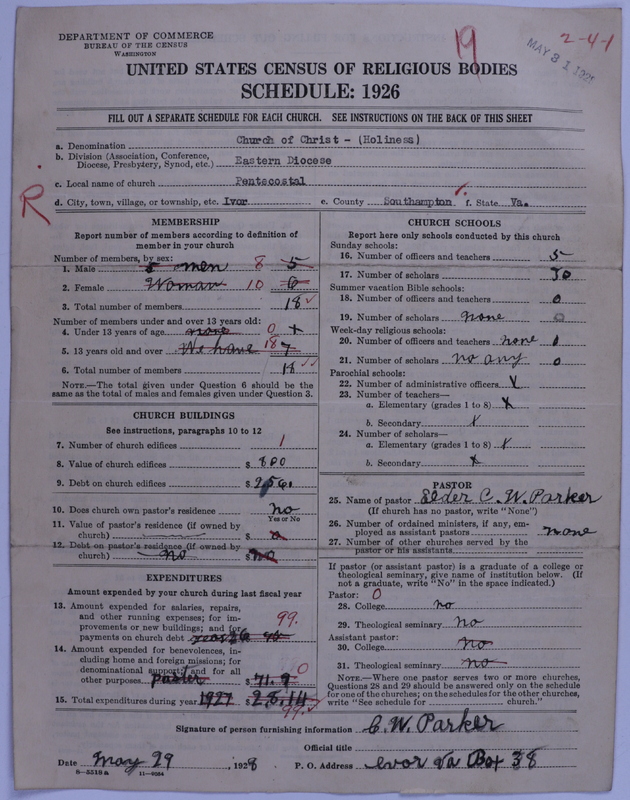 DEPARTMENT OF COMMERCE
BUREAU OF THE CENSUS
WASHINGTON
19
MAY 31 192
2-4-1
UNITED STATES CENSUS OF RELIGIOUS BODIES
SCHEDULE: 1926
FILL OUT A SEPARATE SCHEDULE FOR EACH CHURCH. SEE INSTRUCTIONS ON THE BACK OF THIS SHEET
a. Denomination Church of Christ - (Holiness)
b. Division (Association, Conference, Diocese, Presbytery, Synod, etc.) Eastern Diocese
c. Local name of church Pentecostal
R
d. City, town, village, or township, etc. Ivor e. County Southampton f. State Va.
MEMBERSHIP
Report number of members according to definition of
member in your church
Number of members, by sex:
1. Male 5 men 8 5
2. Female Woman 10 6
3. Total number of members 18
Number of members under and over 13 years old:
4. Under 13 years of age none 0 x
5. 13 years old and over We have 18 7
6. Total number of members 18
NOTE.—The total given under Question 6 should be
same as the total of males and females given under Question 3.
CHURCH BUILDINGS
See instructions, paragraphs 10 to 12
7. Number of church edifices 1
8. Value of church edifices $ 800
9. Debt on church edifices $
10. Does church own pastor's residence no
Yes or No
11. Value of pastor's residence (if owned by
church) $
12. Debt on pastor's residence (if owned by
church) no $ no
EXPENDITURES
Amount expended by your church during last fiscal year
13. Amount expended for salaries, repairs,
and other running expenses; for im-
provements or new buildings; and for
payments on church debt 99.
14. Amount expended for benevolences, in-
cluding home and foreign missions; for
denominational support; and for all
other purposes paster $ 71.9 0
15. Total expenditures during year 1927 $ 28.14
99.
CHURCH SCHOOLS
Report here only schools conducted by this church
Sunday schools:
16. Number of officers and teachers 5
17. Number of scholars 30
Summer vacation Bible schools:
18. Number of officers and teachers 0
19. Number of scholars none 0
Week-day religious schools:
20. Number of officers and teachers none 0
21. Number of scholars no any 0
Parochial schools:
22. Number of administrative officers x
23. Number of teachers—
a. Elementary (grades 1 to 8) x
b. Secondary x
24. Number of scholars—
a. Elementary (grades 1 to 8) x
b. Secondary x
PASTOR
25. Name of pastor Elder C. W. Parker
(If church has no pastor, write "None")
26. Number of ordained ministers, if any, em-
ployed as assistant pastors none
27. Number of other churches served by the
pastor or his assistants
If pastor (or assistant pastor) is a graduate of a college or
theological seminary, give name of institution below. (If
not a graduate, write "No" in the space indicated.)
Pastor: 0
28. College no
29. Theological seminary no
Assistant pastor:
30. College no
31. Theological seminary no
NOTE.—Where one pastor serves two or more churches,
Questions 28 and 29 should be answered only on the schedule
for one of the churches; on the schedules for the other churches,
write "See schedule for church."
Signature of person furnishing information C. W. Parker
Official title
Date May 29, 1928 P. O. Address Ivor Va Box 38
8—5518a 11—9084